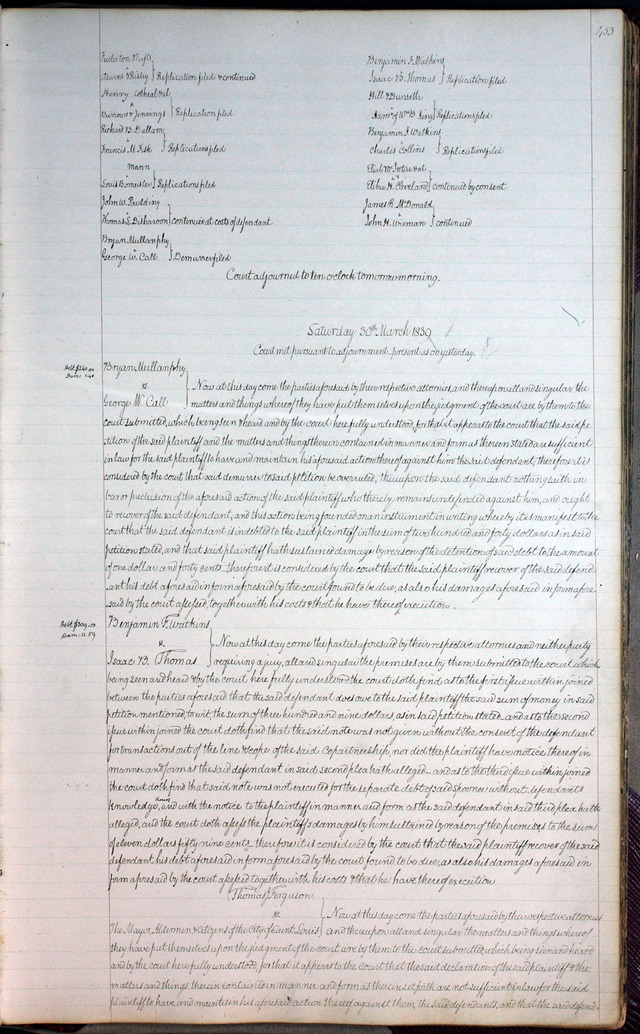 433
Fullerton & Tufts
Leavis & Risley } Replication filed & continued
Henry Cotheal et al
vs
Burrows & Jennings } Replication filed
Richard B. Dallam
Francis M. Fisk } Replication filed
mann
Louis Bomeisler } Replications filed
John W. Paulding
Thomas S. Disharoon } continued at costs of defendant
Bryan Mullanphy
vs
George W. Call } Demurrer filed
Benjamin F. Watkins
Isaac B. Thomas } Replication filed
Hill & Dunseth
Adm. of Wm B. King } Replications filed
Benjamin F. Watkins
Charles Collins } Replications filed
et al
Elihu H. Cleveland } continued by consent
James R. McDonald
vs
John H. Wieman } continued
Court adjourned to ten o'clock tomorrow morning.
Saturday 30th March 1839
Court met pursuant to adjournment present as on yesterday.
Debt $240.00
Dam. 1.40
Bryan Mullanphy
vs
George W. Call } Now at this day come the parties aforesaid by their respective attornies, and thereupon all and singular the
matters and things whereof they have put themselves upon the judgment of the court are by them to the
court submitted, which being seen & heard and by the court here fully understood, for that it appears to the court that the said pe-
tition of the said plaintiff and the matters and things therein contained in manner and form as therein stated are sufficient
in law for the said plaintiff to have and maintain his aforesaid action thereof against him the said defendant, therefore it is
considered by the court that said demurrer to said petition be overruled, thereupon the said defendant nothing saith in
bar or preclusion of the aforesaid action of the said plaintiff who thereby remains undefended against him, and ought
to recover of the said defendant, and this action being founded on an instrument in writing whereby it is manifest to the
court that the said defendant is indebted to the said plaintiff in the sum of two hundred and forty dollars as in said
petition stated, and that said plaintiff hath sustained damage by reason of the detention of said debt to the amount
of one dollar and forty cents. therefore it is considered by the court that the said plaintiff recover of the said defend-
ant his debt aforesaid in form aforesaid by the court found to be due, as also his damages aforesaid in form afore-
said by the court assessed, together with his costs & that he have thereof execution.
Debt $309.00
Dam. 11.59
Benjamin F. Watkins
vs.
Isaac B. Thomas } Now at this day come the parties aforesaid by their respective attornies and neither party
requiring a jury, all and singular the premises are by them submitted to the court which
being seen and heard & by the court here fully understood the court doth find, as to the first issue within joined
between the parties aforesaid that the said defendant does owe to the said plaintiff the said sum of money in said
petition mentioned, to wit the sum of three hundred and nine dollars, as in said petition stated. and as to the second
issue within joined the court doth find that the said note was not given without the consent of the defendant
for transactions out of the line & scope of the said Copartnership, nor did the plaintiff have notice thereof in
manner and form as the said defendant in said second plea hath alleged — and as to the third issue within joined
the court doth find that said note was not executed for the separate debt of said Spooner without defendants
knowledge, and with the notice to the plaintiff in manner and form as the said defendant in said third plea hath
alleged, and the court doth assess the plaintiffs damages by him sustained by reason of the premises to the sum
of eleven dollars fifty nine cents. therefore it is considered by the court that the said plaintiff recover of the said
defendant his debt aforesaid in form aforesaid by the court found to be due, as also his damages aforesaid in
form aforesaid by the court assessed together with his costs & that he have thereof execution
Thomas Ferguson
vs.
The Mayor, Aldermen & citizens of the City of Saint Louis } Now at this day come the parties aforesaid by their respective attornies
and thereupon all and singular the matters and things whereof
they have put themselves upon the judgment of the court are by them to the court submitted, which being seen and heard
and by the court here fully understood, for that it appears to the court that the said declaration of the said plaintiff & the
matters and things therein contained in manner and form as therein set forth are not sufficient in law for the said
plaintiff to have and maintain his aforesaid action thereof against them, the said defendants, and that the said defend-